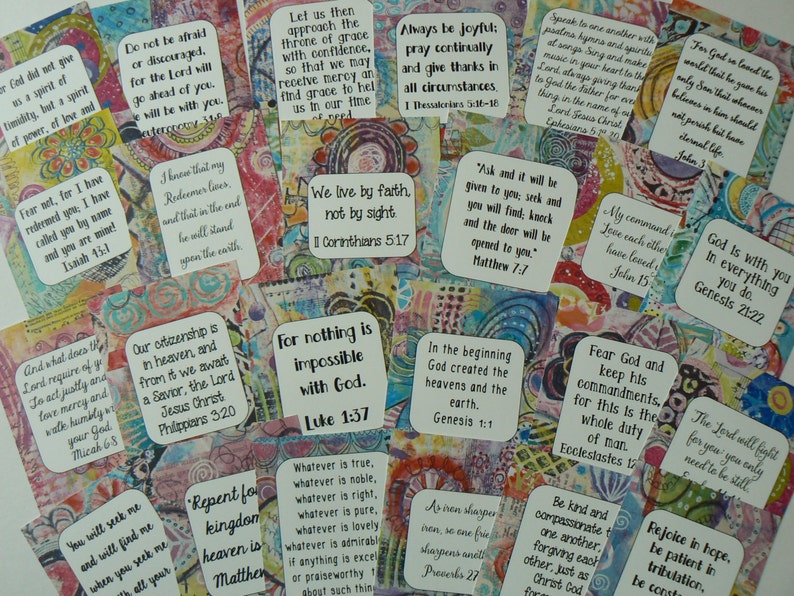 or God did not give
us a spirit of
timidity, but a spirit
of power, of love and
Do not be afraid
or discouraged,
for the Lord will
go ahead of you.
e will be with you.
Let us then
approach the
throne of grace
with confidence,
so that we may
receive mercy an
find grace to hel
us in our time
of need
Always be joyful;
pray continually
and give thanks in
all circumstances.
I Thessalonians 5:16-18
Speak to one another with
psalms, hymns and spiritu
al songs. Sing and make
music in your heart to the
Lord, always giving thank
to God the Father for ever
thing, in the name of ou
Lord Jesus Christ.
Ephesians 5:19-20
For God so loved the
world that he gave his
only Son, that whoever
believes in him should
not perish but have
eternal life.
John 3
Fear not, for I have
redeemed you; I have
called you by name
and you are mine!
Isaiah 43:1
I know that my
Redeemer lives,
and that in the end
he will stand
upon the earth.
We live by faith,
not by sight.
II Corinthians 5:17
"Ask and it will be
given to you; seek and
you will find; knock
and the door will be
opened to you."
Matthew 7:7
My command i
Love each othe
have loved
John 15
God is with you
in everything
you do.
Genesis 21:22
And what does th
Lord require of y
To act justly and
love mercy and
walk humbly w
your God.
Micah 6:8
Our citizenship is
in heaven, and
from it we await
a Savior, the Lord
Jesus Christ.
Philippians 3:20
For nothing is
impossible
with God.
Luke 1:37
In the beginning
God created the
heavens and the
earth.
Genesis 1:1
Fear God and
keep his
commandments,
for this is the
whole duty
of man.
Ecclesiastes 12
The Lord will fight
for you; you only
need to be still.
You will seek me
and will find me
when you seek me
with all your
"Repent for
kingdom
heaven is
Matthew
Whatever is true,
whatever is noble,
whatever is right,
whatever is pure,
whatever is lovely
whatever is admirabl
if anything is excel
or praiseworthy t
about such thing
As iron sharpen
iron, so one frie
sharpens anoth
Proverbs 27
Be kind and
compassionate t
one another,
forgiving each
other, just as
Christ God
forgave
Rejoice in hope,
be patient in
tribulation,
be const